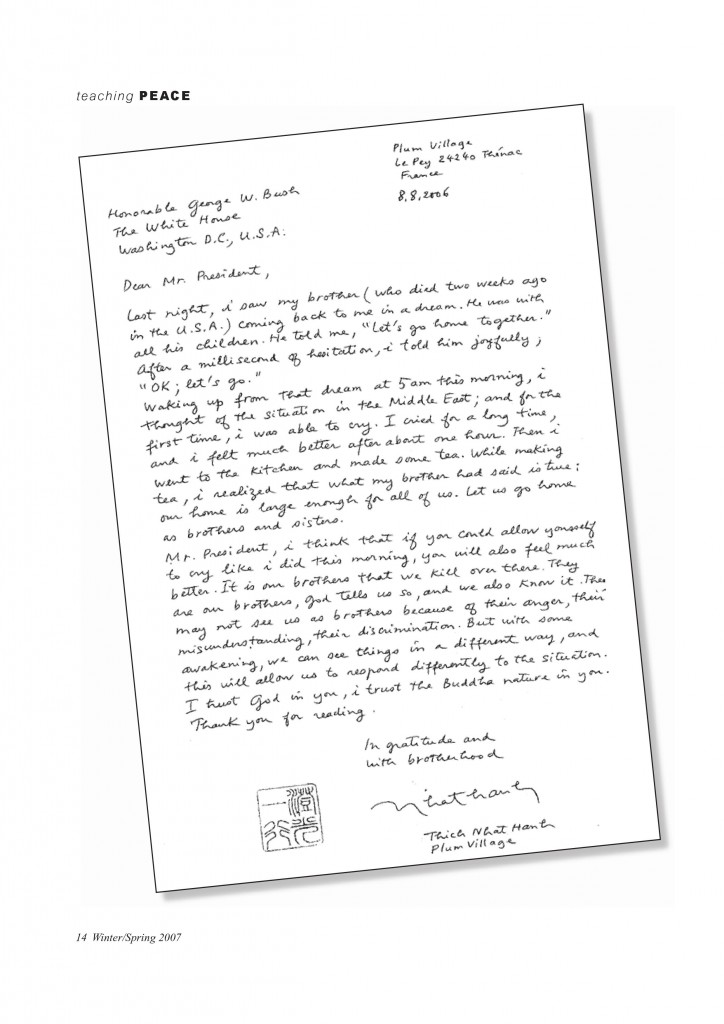 teaching PEACE
Plum Village
Le Pey 24240 Thénac
France
8.8.2006
Honorable George W. Bush
The White House
Washington D.C., U.S.A.
Dear Mr. President,
Last night, i saw my brother (who died two weeks ago
in the U.S.A.) coming back to me in a dream. He was with
all his children. He told me, "Let's go home together."
After a millisecond of hesitation, i told him joyfully;
"OK; let's go."
Waking up from that dream at 5 am this morning, i
thought of the situation in the Middle East; and for the
first time, i was able to cry. I cried for a long time,
and i felt much better after about one hour. Then i
went to the kitchen and made some tea. While making
tea, i realized that what my brother had said is true:
our home is large enough for all of us. Let us go home
as brothers and sisters.
Mr. President, i think that if you could allow yourself
to cry like i did this morning, you will also feel much
better. It is our brothers that we kill over there. They
are our brothers, God tells us so, and we also know it. They
may not see us as brothers because of their anger, their
misunderstanding, their discrimination. But with some
awakening, we can see things in a different way, and
this will allow us to respond differently to the situation.
I trust God in you, i trust the Buddha nature in you.
Thank you for reading.
In gratitude and
with brotherhood
Nhat Hanh
Thich Nhat Hanh
Plum Village
14 Winter/Spring 2007